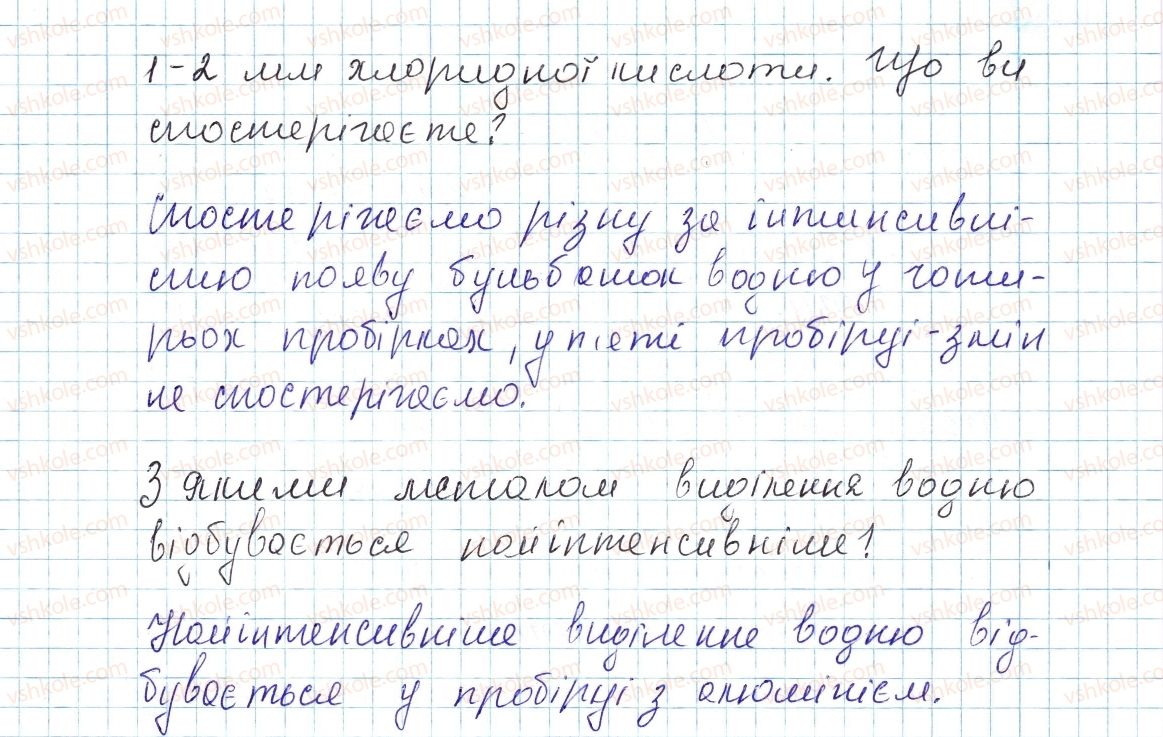 1-2 мл хлоридної кислоти. Що ви
спостерігаєте?
Спостерігаємо різну за інтинсивні-
стю появу бульбашок водню у чоти-
рьох пробірках, у пєяті пробірці - змін
не спостерігаємо.
З якими металом виділення водню
відбувається найінтенсивніше?
Найінтенсивніше виділення водню від-
бувається у пробірці з алюмінієм.